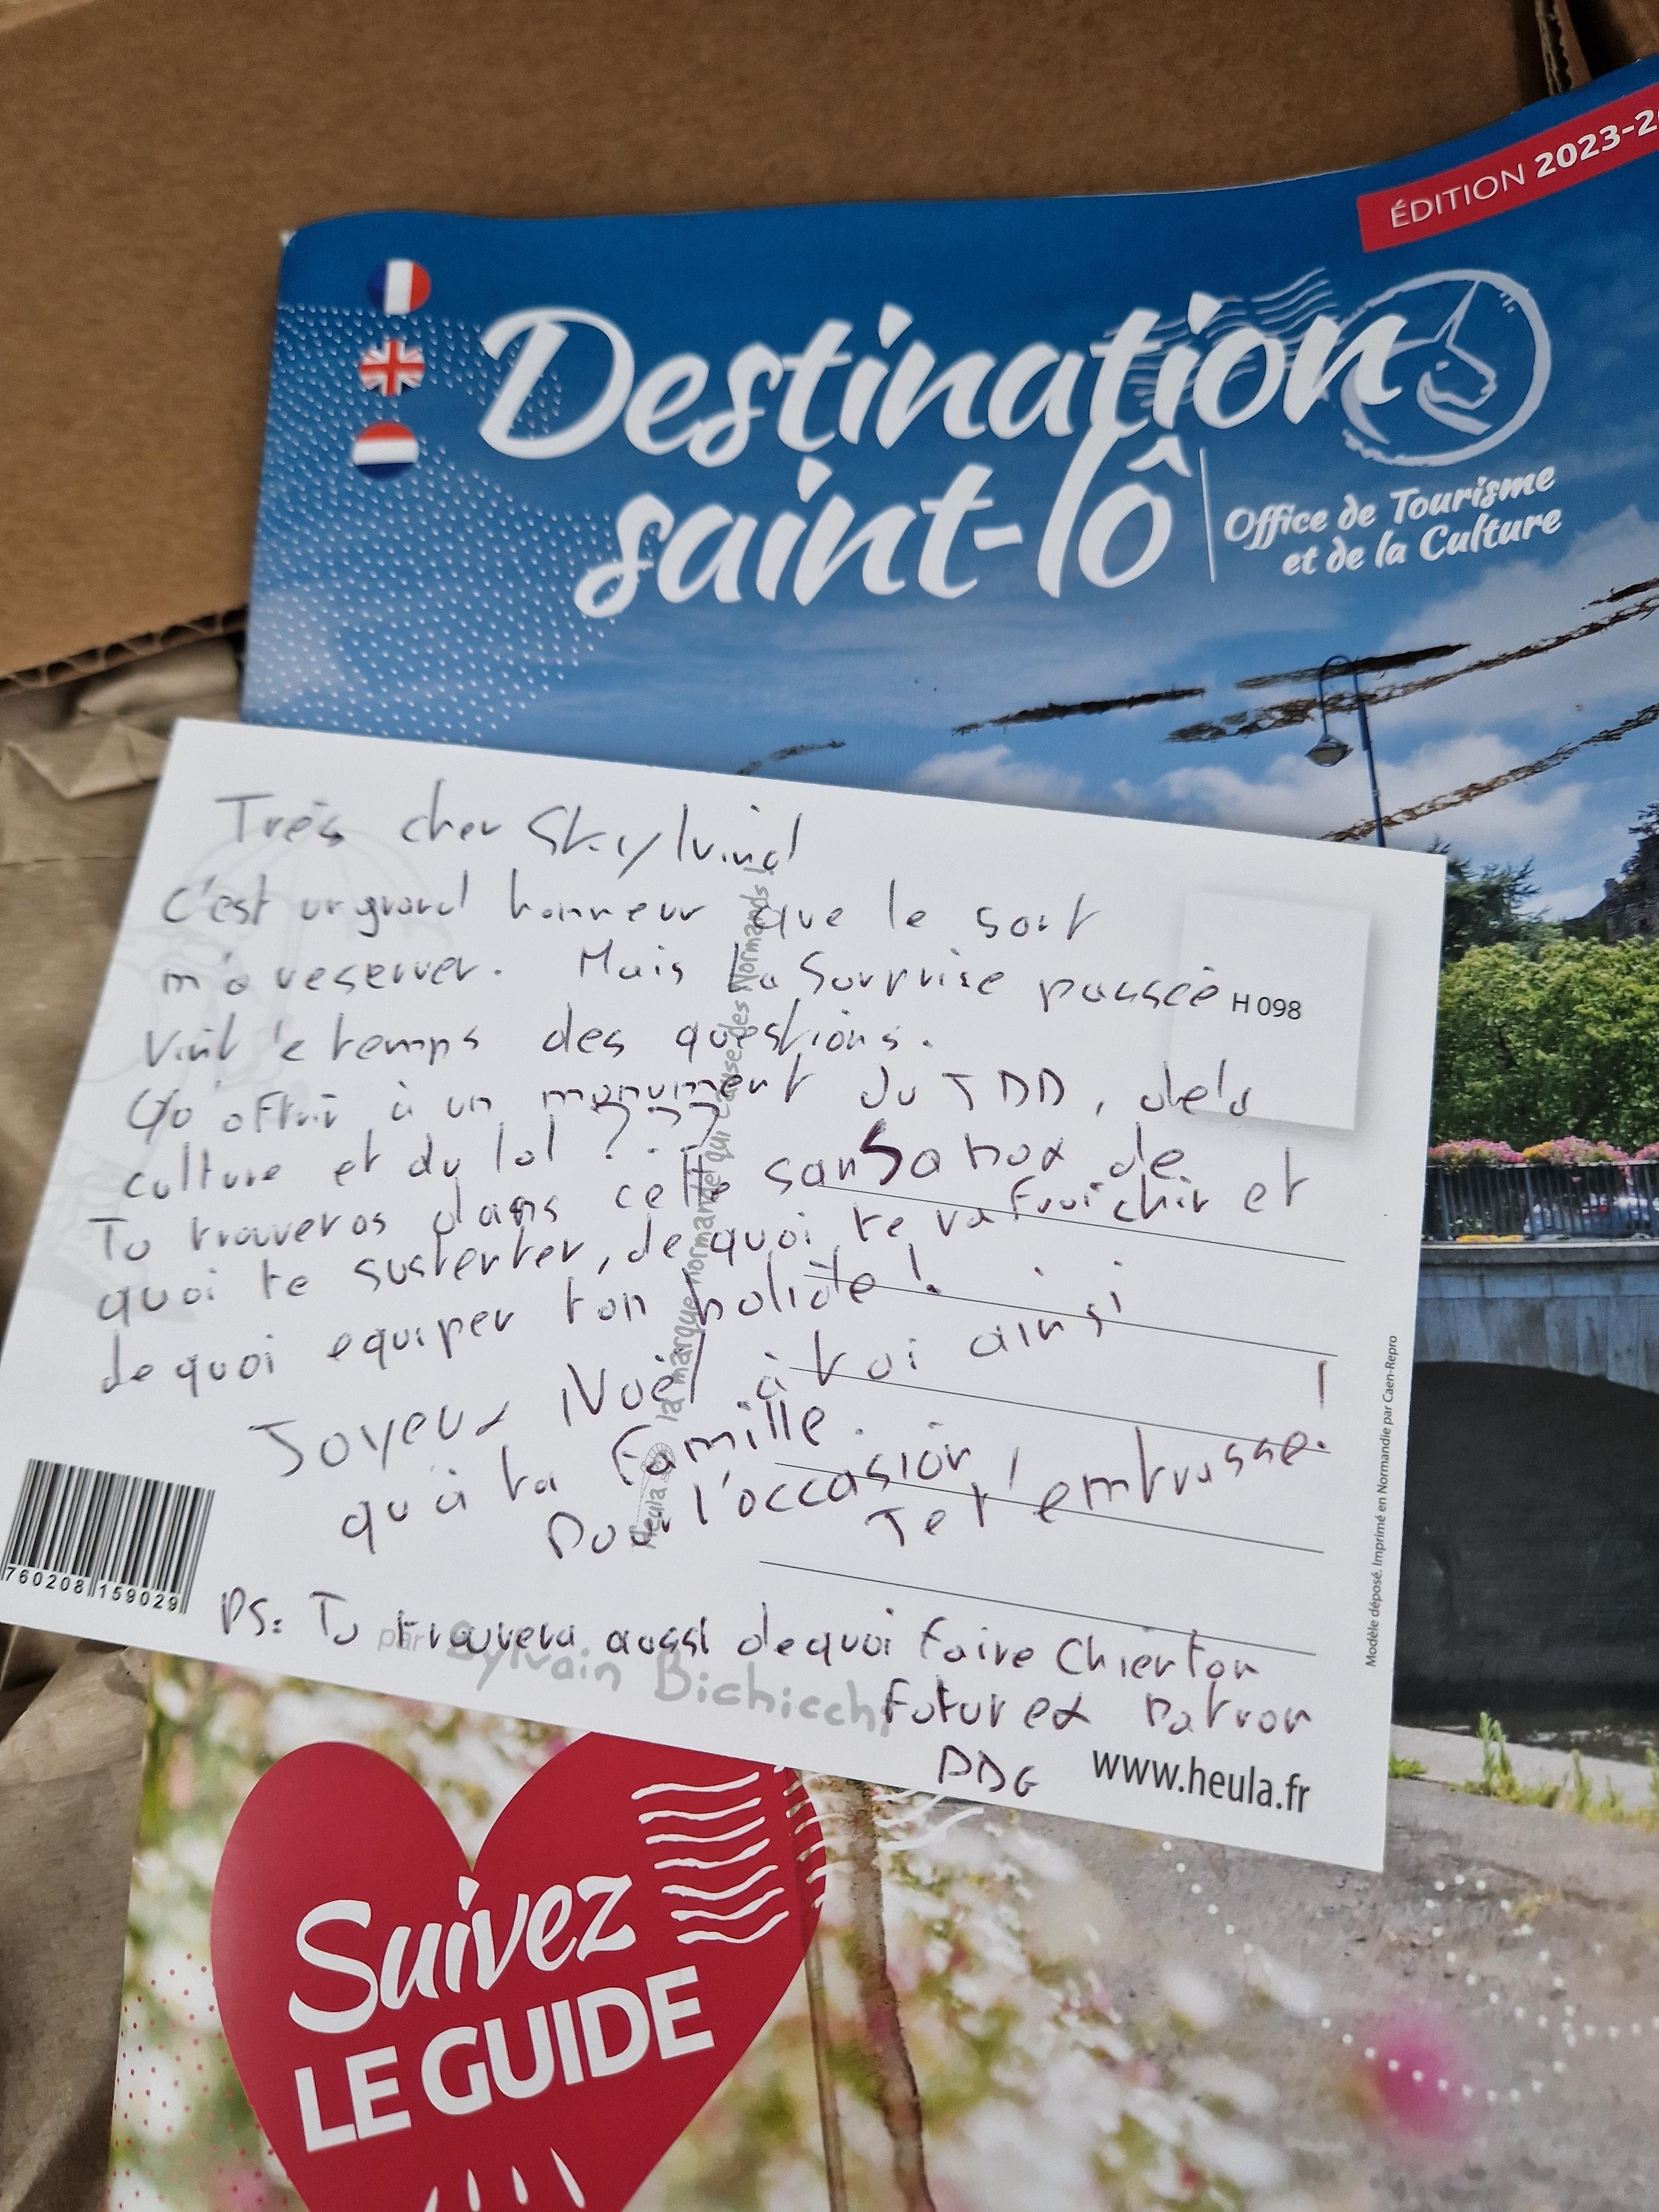 ÉDITION 2023-2
Destination
saint-lô
Office de Tourisme
et de la Culture
Très cher
C'est un grand honneur que le sort
m'a reserver. Mais la Surprise passée
Vint le temps des questions.
Qu'offrir à un monument du JDD, dela
culture et du lol ???
Tu trouveras dans cette sansanox de
quoi te sustenter, de quoi te rafraichir et
de quoi equiper ton bolide !
Joyeux Noël à toi ainsi
qu'à ta Famille.
Pour l'occasion, !
Je t'embrasse.
PS: Tu trouvera aussi dequoi faire Chier ton
Futur ex Patron
DDG
H 098
Heula la marque normande qui cause des Normands !
par Sylvain Bichicchi
760208 159029
www.heula.fr
Modèle déposé. Imprimé en Normandie par Caen-Repro
Suivez
LE GUIDE